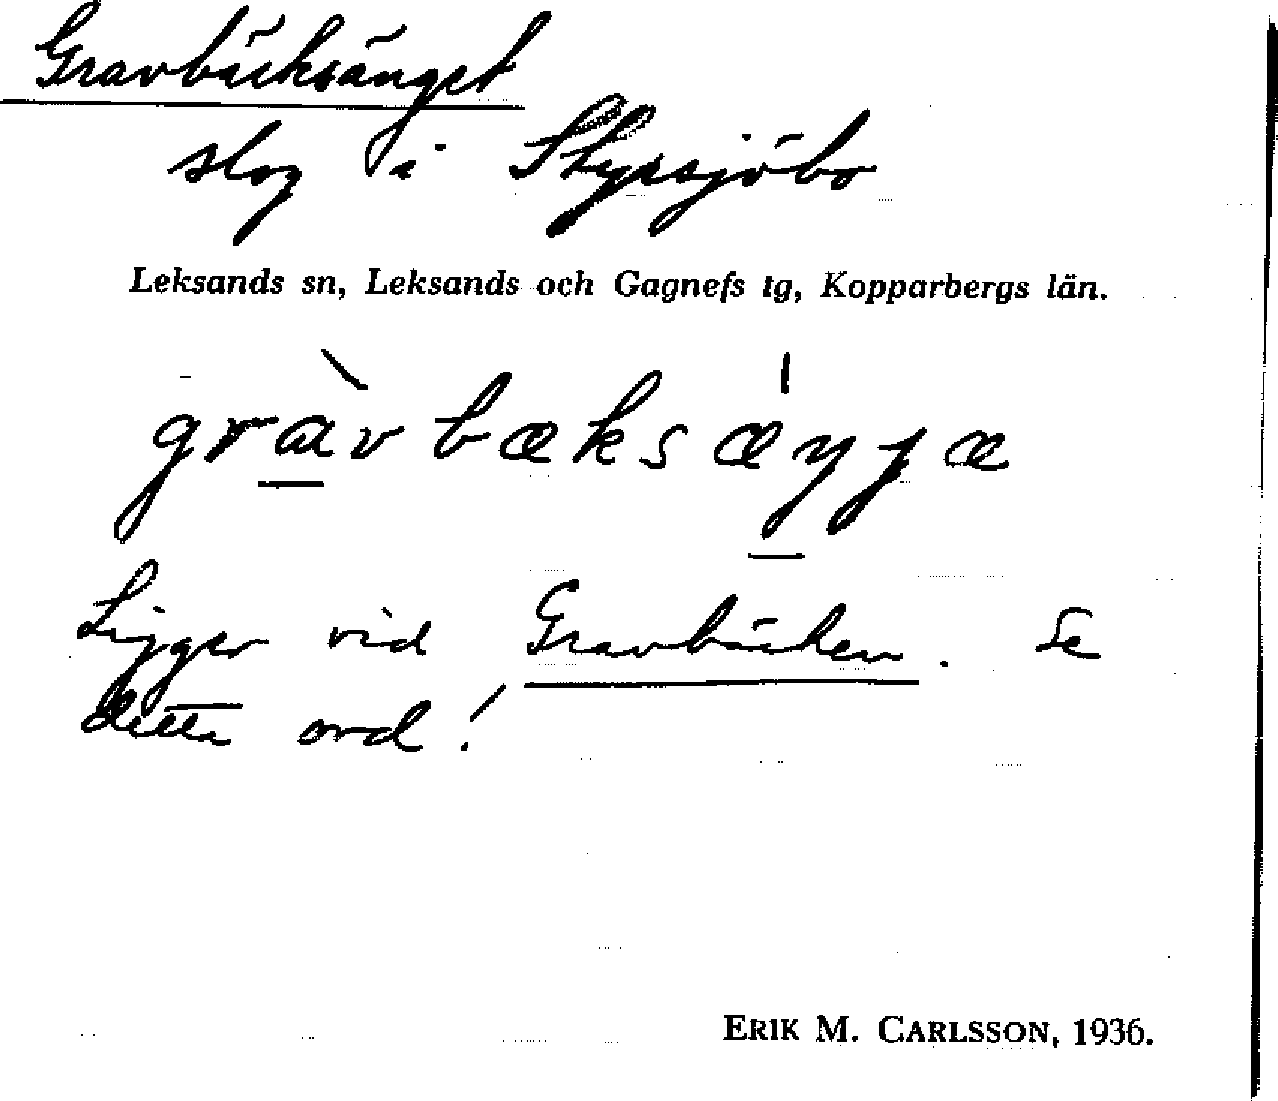 Gravbäcksänget
slog i Styrsjöbo
Leksands sn, Leksands och Gagnefs tg, Kopparbergs län.
gràvbæksæŋɟæ
Ligger vid Gravbäcken. Se
detta ord!
ERIK M. CARLSSON, 1936.